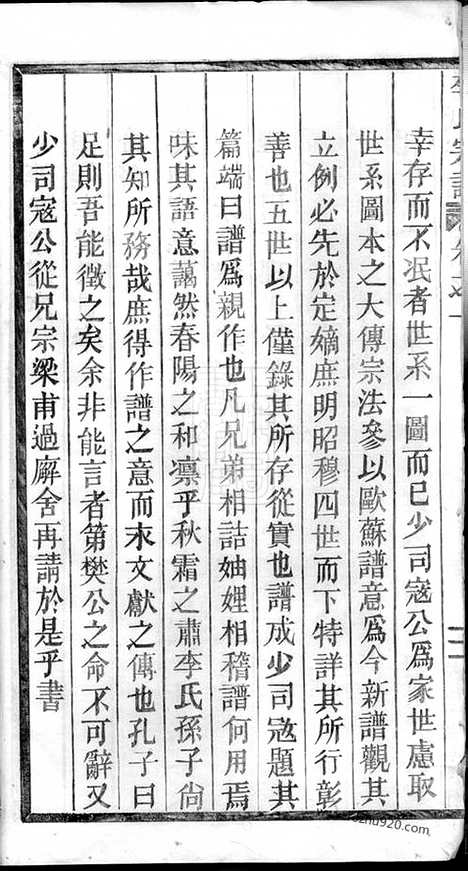 幸存而不泯者世系一圖而已少司寇公爲家世慮取
世系圖本之大傳宗法參以歐蘇譜意爲今新譜觀其
立例必先於定嫡庶明昭穆四世而下特詳其所行彰
善也五世以上僅錄其所存從實也譜成少司寇題其
篇端曰譜爲親作也凡兄弟相詰妯娌相稽譜何用焉
味其語意藹然春陽之和凛乎秋霜之肅李氏孫子尙
其知所務哉庶得作譜之意而求文獻之傳也孔子曰
足則吾能徵之矣余非能言者第樊公之命不可辭又
少司寇公從兄宗梁甫過廨舍再請於是乎書